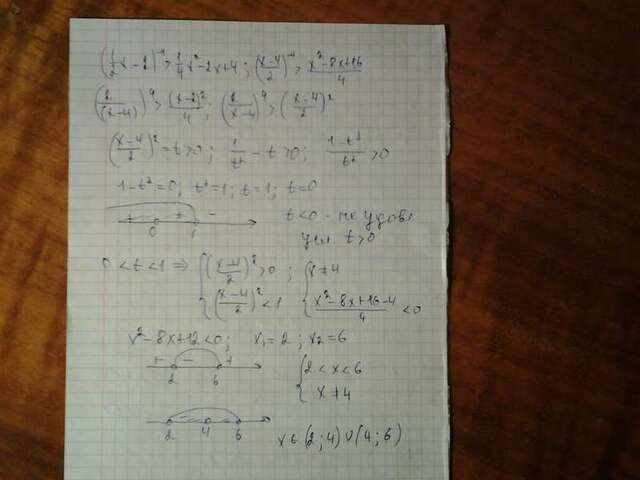 (1/2 x - 2)^-4 > 1/4 x² - 2x + 4 ; (x-4/2)^-4 > x² - 8x + 16/4
(2/(x-4))^4 > (x-2)²/4 ; (2/x-4)^4 > (x-4/2)²
(x-4/2)² = t > 0 ; 1/t² - t > 0 ; 1-t³/t² > 0
1 - t³ = 0 ; t³ = 1 ; t = 1 ; t = 0
+ + -
0 1
t < 0 - не удовл
усл. t > 0
0 < t < 1 ⇒ { (x-4/2)² > 0 ; { x ≠ 4
{ (x-4/2)² < 1 { x² - 8x + 16 - 4/4 < 0
x² - 8x + 12 < 0 ; x₁ = 2 ; x₂ = 6
+ - +
2 6
{ 2 < x < 6
x ≠ 4
2 4 6
x ∈ (2 ; 4) ∪ (4 ; 6)